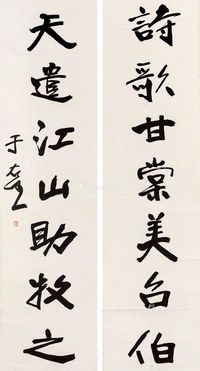 詩歌甘棠美召伯
天遣江山助牧之
于右任